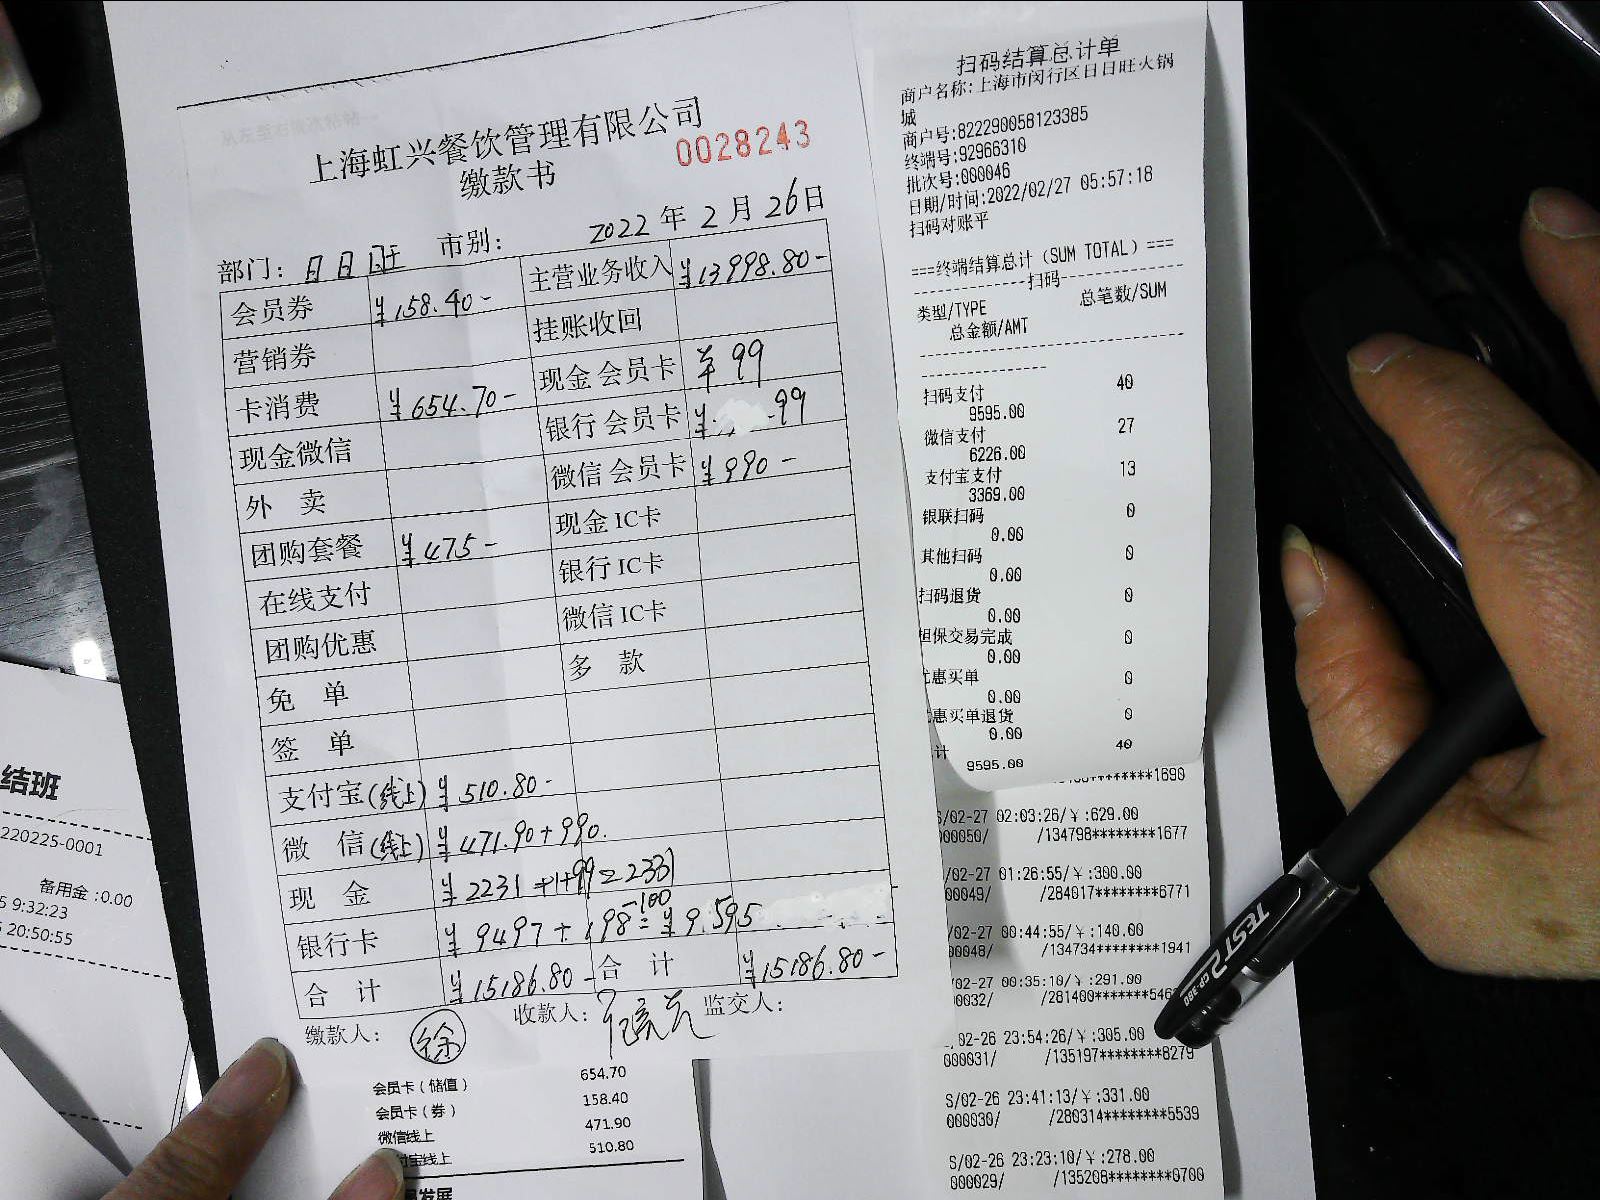 上海虹兴餐饮管理有限公司
0028243
缴款书
部门: 日日旺 市别: 2022 年 2 月 26 日
会员券 ¥158.40- 主营业务收入 ¥13998.80-
营销券 挂账收回
卡消费 ¥654.70- 现金 会员卡 ¥99
现金微信 银行 会员卡 ¥ -99
外 卖 微信 会员卡 ¥990-
团购套餐 ¥475- 现金 IC卡
在线支付 银行 IC卡
团购优惠 微信 IC卡
免 单 多 款
签 单
支付宝(线上) ¥510.80-
微 信(线上) ¥471.90+990.
现 金 ¥2231 +1+99=2331
银行卡 ¥9497+198-100=¥9595
合 计 ¥15186.80- 合 计 ¥15186.80-
缴款人: 徐 收款人: 监交人:
会员卡(储值) 654.70
会员卡(券) 158.40
微信线上 471.90
付宝线上 510.80
发展
结班
220225-0001
备用金:0.00
9:32:23
20:50:55
扫码结算总计单
商户名称:上海市闵行区日日旺火锅
城
商户号:822290058123385
终端号:92966310
批次号:000046
日期/时间:2022/02/27 05:57:18
扫码对账平
===终端结算总计(SUM TOTAL)===
----------------扫码----------------
类型/TYPE 总笔数/SUM
总金额/AMT
扫码支付 40
9595.00
微信支付 27
6226.00
支付宝支付 13
3369.00
银联扫码 0
0.00
其他扫码 0
0.00
扫码退货 0
0.00
担保交易完成 0
0.00
优惠买单 0
0.00
优惠买单退货 0
0.00
计 40
9595.00
********1690
S/02-27 02:03:26/¥:629.00
000050/ /134798********1677
/02-27 01:26:55/¥:300.00
00049/ /284017********6771
/02-27 00:44:55/¥:140.00
00048/ /134734********1941
/02-27 00:35:10/¥:291.00
00032/ /281400********546
/02-26 23:54:26/¥:305.00
000031/ /135197********8279
S/02-26 23:41:13/¥:331.00
000030/ /280314********5539
S/02-26 23:23:10/¥:278.00
000029/ /135208********0700
TEST2 GP-380